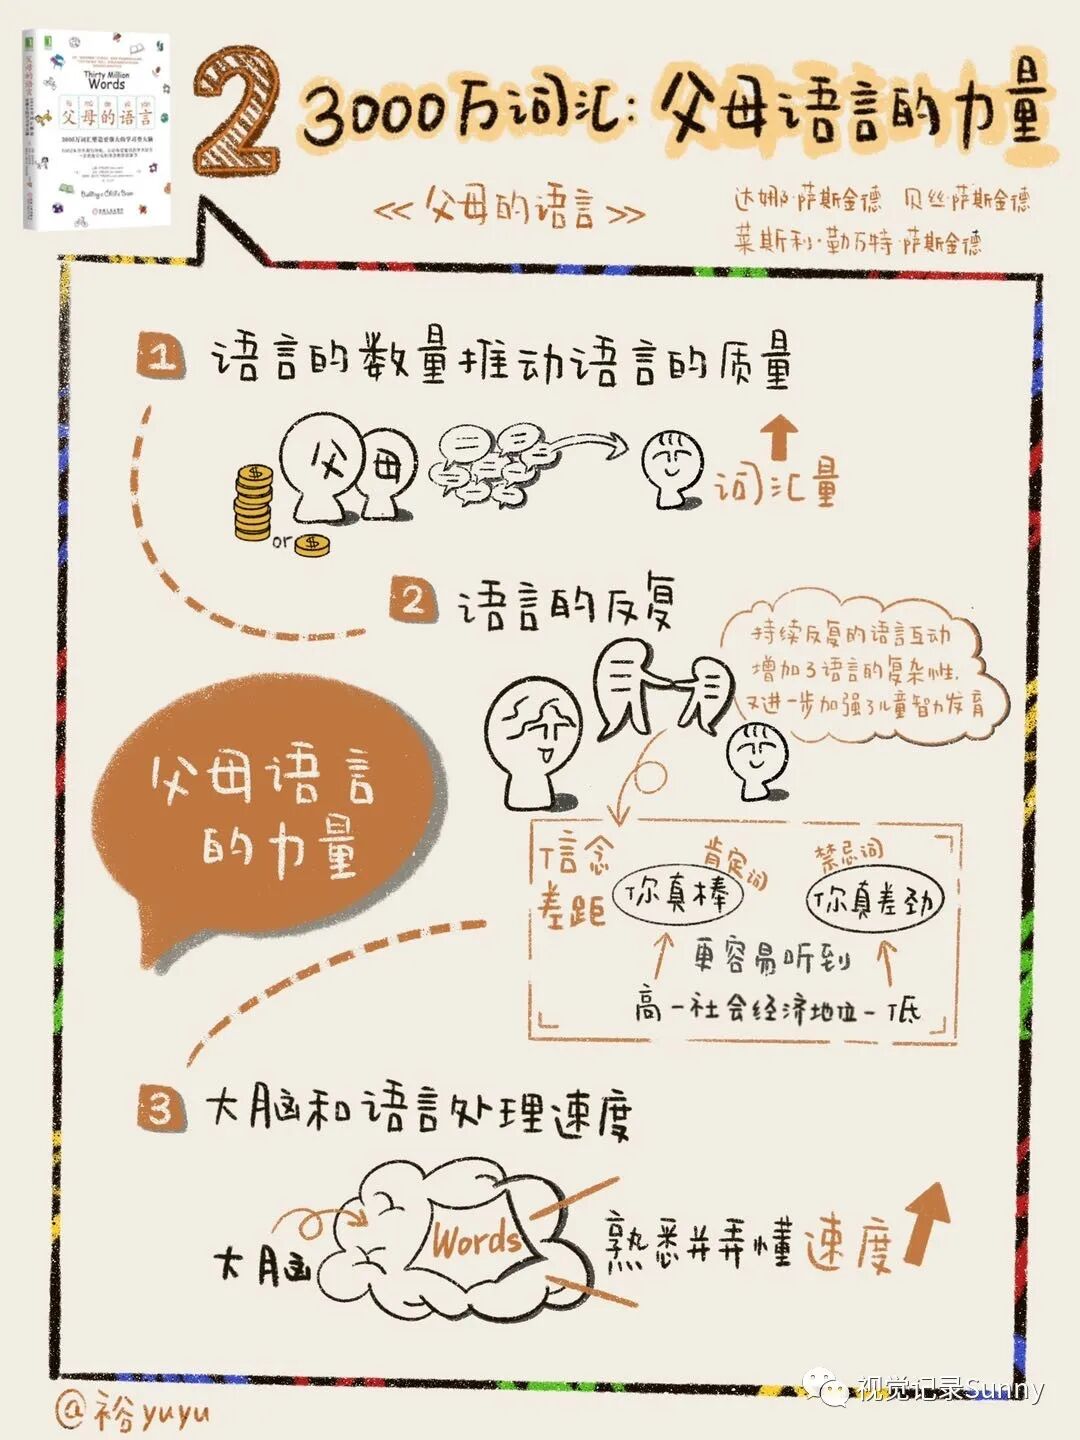 Thirty Million
Words
父母的语言
3000万词汇塑造更强大的学习型大脑
Building a Child's Brain
2
3000万词汇:父母语言的力量
<<父母的语言>>
达娜·萨斯金德 贝丝·萨斯金德
莱斯利·勒万特·萨斯金德
1 语言的数量推动语言的质量
父 母
$
or $
词汇量
2 语言的反复
持续反复的语言互动
增加了语言的复杂性,
又进一步加强了儿童智力发育
父母语言
的力量
信念
差距
肯定词
禁忌词
你真棒
你真差劲
更容易听到
高-社会经济地位-低
3 大脑和语言处理速度
大脑
Words
熟悉并弄懂速度
@裕yuyu
视觉记录Sunny